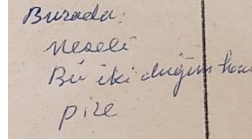 Burada:
neşeli
Bu iki düğüm
pire